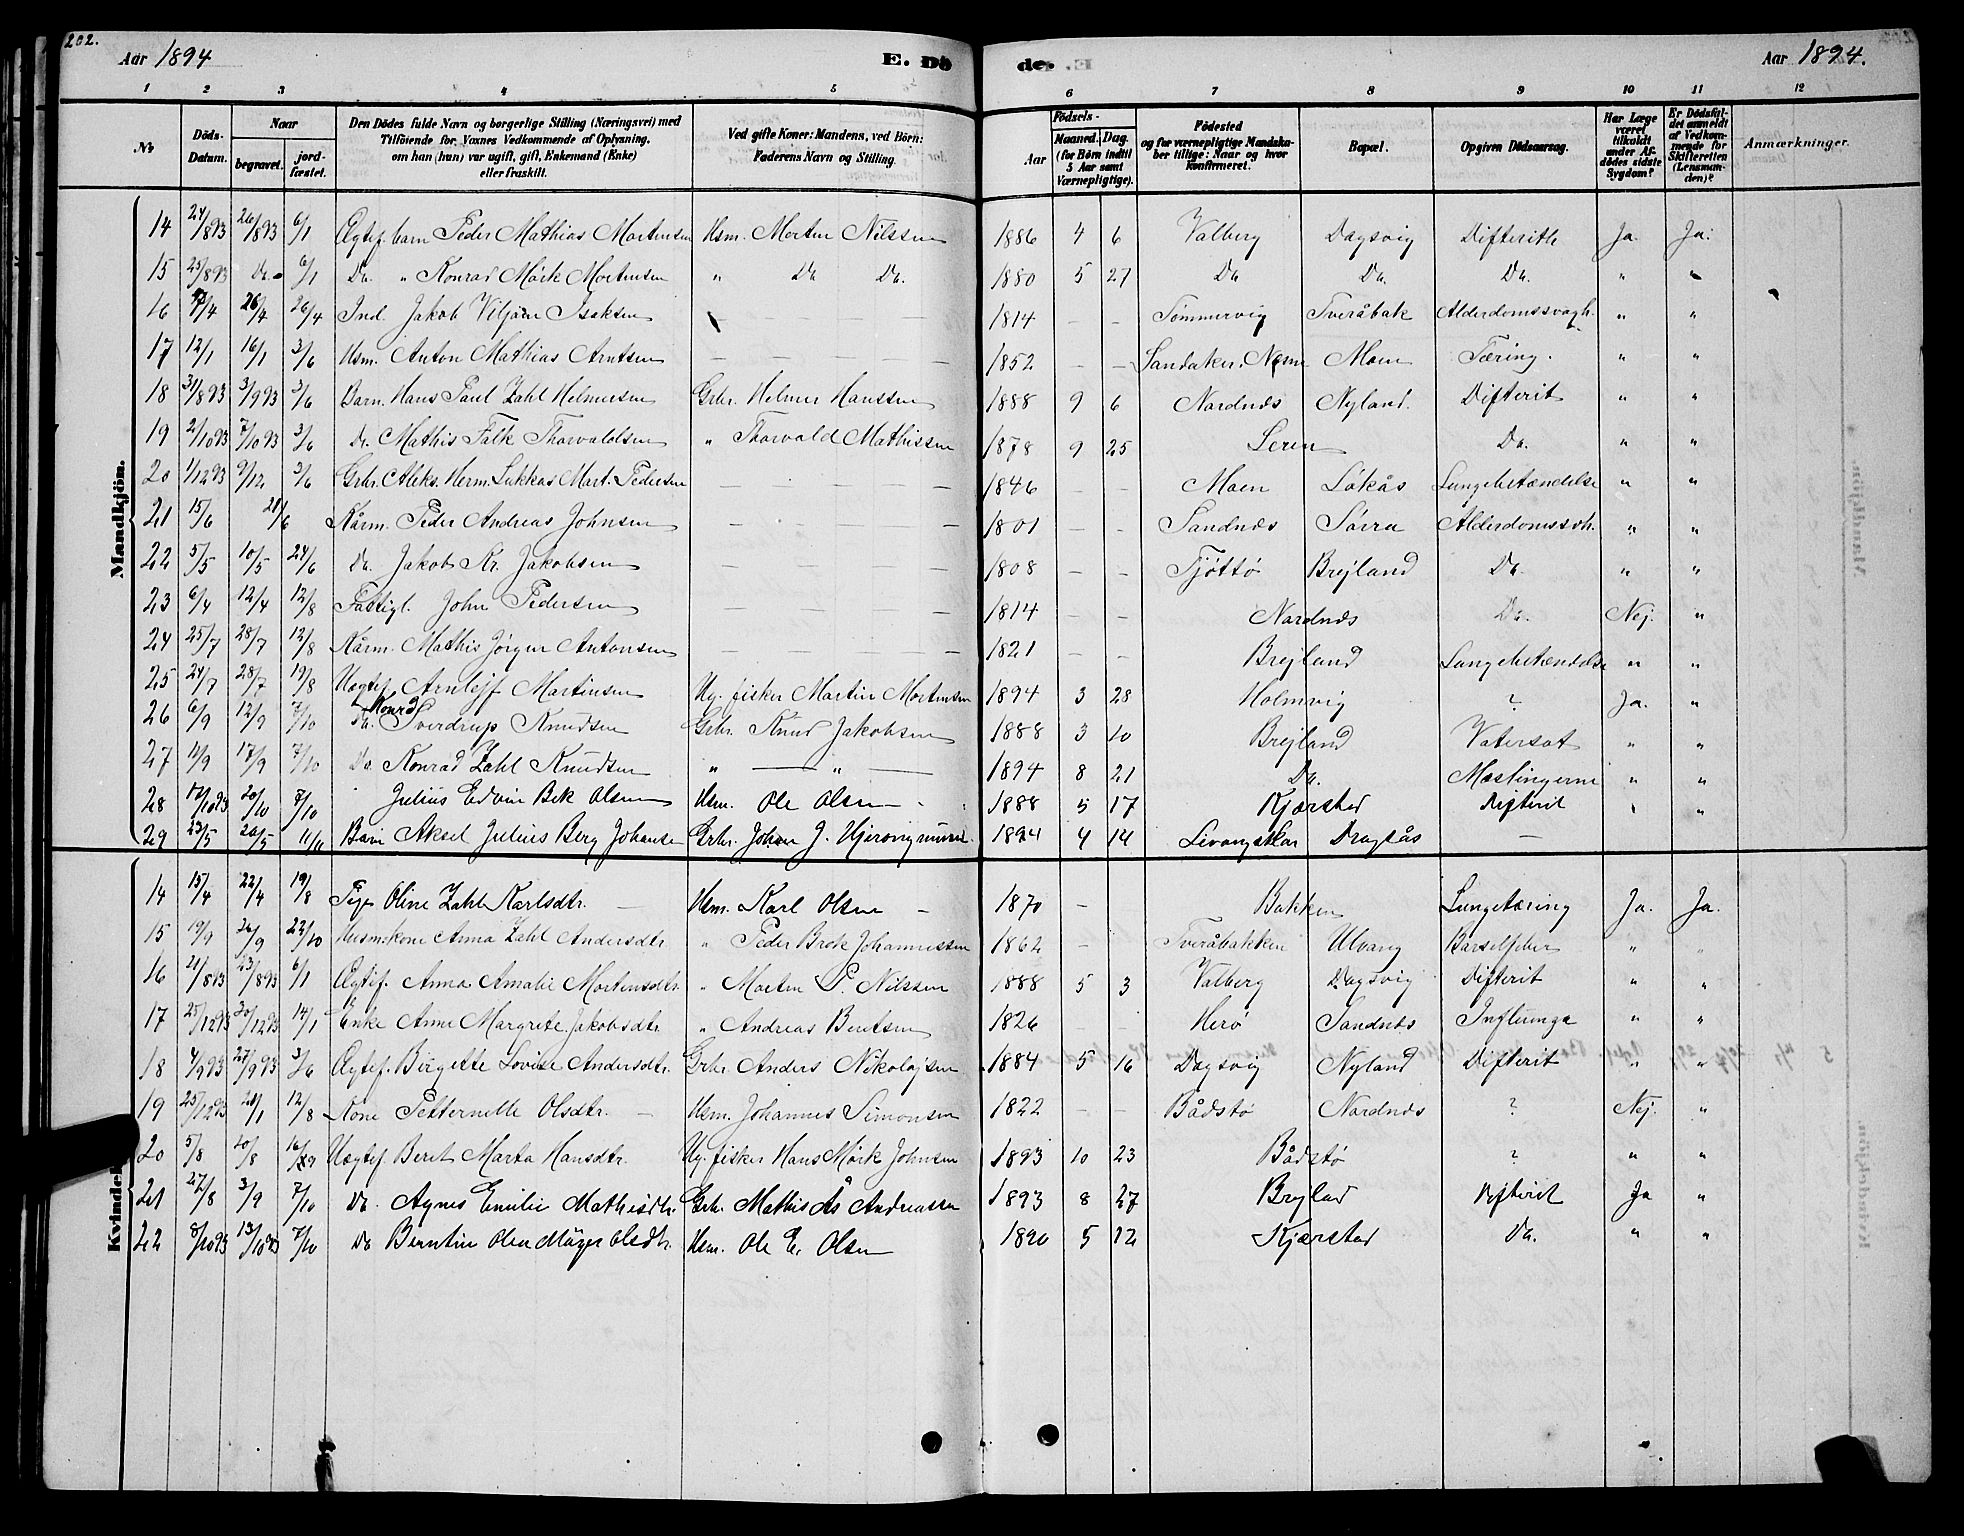 202.
Aar 1894
E. Dö
de.
Aar 1894.
1 2 3 4 5 6 7 8 9 10 11 12
No
Döds-Datum.
Naar
begravet.
jord-fæstet.
Den Dödes fulde Navn og borgerlige Stilling (Næringsvei) med
Tilföiende for Voxnes Vedkommende af Oplysning,
om han (hun) var ugift, gift, Enkemand (Enke)
eller fraskilt.
Ved gifte Koner: Mandens, ved Börn:
Faderens Navn og Stilling.
Födsels-
Aar
Maaned. Dag.
(for Börn indtil
5 Aar samt
Værnepligtige).
Födested
og for værnepligtige Mandska-
ber tillige: Naar og hvor
konfirmeret.
Bopæl.
Opgiven Dödsaarsag.
Har Læge
været
tilkaldt
under Af-
dödes sidste
Sygdom?
Er Dödsfal-
det anmeldt
af Vedkom-
mende for
Skifteretten
(Lensman-
den)?
Anmærkninger.
Mandkjön.
14 24/893 26/893 6/1 Ægtef. barn Peder Mathias Mortensen Hsm. Morten Nilssen 1886 4 6 Valberg Dagsvig Difterith Ja. Ja.
15 25/893 Do 6/1 Do. " Konrad Mörk Mortensen " Do Do. 1880 5 27 Do Do. Do. " "
16 /4 26/4 26/4 Ind. Jakob Viljam Isaksen — — — 1814 — — Tømmervig Tveråbak Alderdomssvagh. " "
17 12/1 16/1 3/6 Hsm. Anton Mathias Arntsen — — — 1852 — — Sandaker, Nesne Moen Tæring. " "
18 31/893 3/993 3/6 Barn. Hans Paul Zahl Helmersen Grbr. Helmer Hanssen 1888 9 6 Nardnæs Nyland. Difterit " "
19 2/1093 7/1093 3/6 Do. Mathis Falk Thorvaldsen " Thorvald Mathissen 1878 9 25 Leren Do. " "
20 1/1293 9/12 3/6 Grbr. Aleks. Herm. Lukkas Mart. Pedersen — — — 1846 — — Moen Løkås Lungebetændelse " "
21 15/6 21/6 Kårm. Peder Andreas Johnsen — — — 1801 — — Sandnæs Sørra Alderdomssvh. " "
22 5/5 10/5 24/6 Do. Jakob Kr. Jakobsen — — — 1808 — — Tjøttø Brejland Do. " "
23 6/4 12/4 12/8 Fattigl. John Pedersen — — — 1814 — — Nardnæs Do. Nej. "
24 25/7 28/7 12/8 Kårm. Mathis Jørgen Antonsen — — — 1821 — — Brejland Lungebetændelse " "
25 24/7 28/7 19/8 Uægtef. Arnlejf Martinsen Ug. fisker Martin Mortensen 1894 3 28 Holmvig ? Ja. "
26 6/9 12/9 7/10 Do. Konrd Sverdrup Knudsen Grbr. Knud Jakobsen 1888 3 10 Brejland Vatersot " "
27 11/9 17/9 7/10 Do. Konrad Zahl Knudsen " — " — 1894 8 21 Do. Mæslingerne " "
28 12/1093 20/10 7/10 Julius Edvin Bek Olsen Hsm. Ole Olsen 1888 5 17 Kjærstad Difterit " "
29 23/5 26/5 11/11 Barn Aksel Julius Berg Johansen Grbr. Johan J. 1894 4 14 Dragsås —
Kvindek
14 15/4 22/4 19/8 Pige Oline Zahl Karlsdtr. — Hsm. Karl Olsen — 1870 — Bakken Lungetæring Ja. Ja.
15 19/9 26/9 22/10 Husm.kone Anna Zahl Andersdtr " Peder Brok Johannessen 1862 — Tveråbakken Ulvang Barselfeber " "
16 21/893 23/893 6/1 Ægtef. Anna Amalie Mortensdtr. " Morten P. Nilssen 1888 5 3 Valberg Dagsvig Difterit " "
17 25/1293 30/1293 14/1 Enke Anne Margrete Jakobsdtr " Andreas Bentsen 1826 Herø Sandnæs Influenga " "
18 4/993 27/993 3/6 Ægtef. Birgitte Lovise Andersdtr. Grbr. Anders Nikolajsen 1884 5 16 Dagsvig Nyland Difterit " "
19 25/1293 21/1 12/8 Kone Petternelle Olsdtr. — Hsm. Johannes Simonsen 1822 — — Bådstø Nardnæs ? Nej. "
20 5/8 20/8 16/9 Uægtef. Berit Marta Hansdtr. Ug. fisker Hans Mørk Johnsen 1893 10 23 Bådstø ? " "
21 27/8 3/9 7/10 Do. Agnes Emilie Mathisdtr. Grbr. Mathis Ås Andreassen 1893 8 27 Brejland Difterit Ja "
22 8/1093 13/1093 7/10 Do Berntin Olea Møyer Olsdtr. Hsm. Ole E. Olsen 1890 5 12 Kjærstad Do. " "